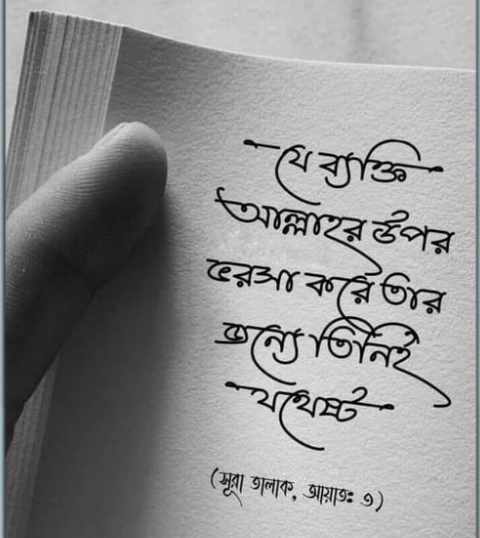 যে ব্যক্তি
আল্লাহর উপর
ভরসা করে তার
জন্যে তিনিই
যথেষ্ট
(সূরা তালাক, আয়াতঃ ৩)